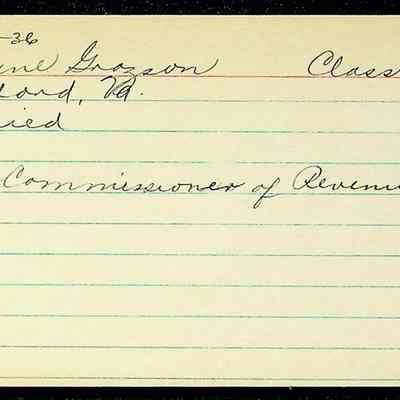 -36
Grozson Class
ford, Va.
ried
Commissioner of Revenu